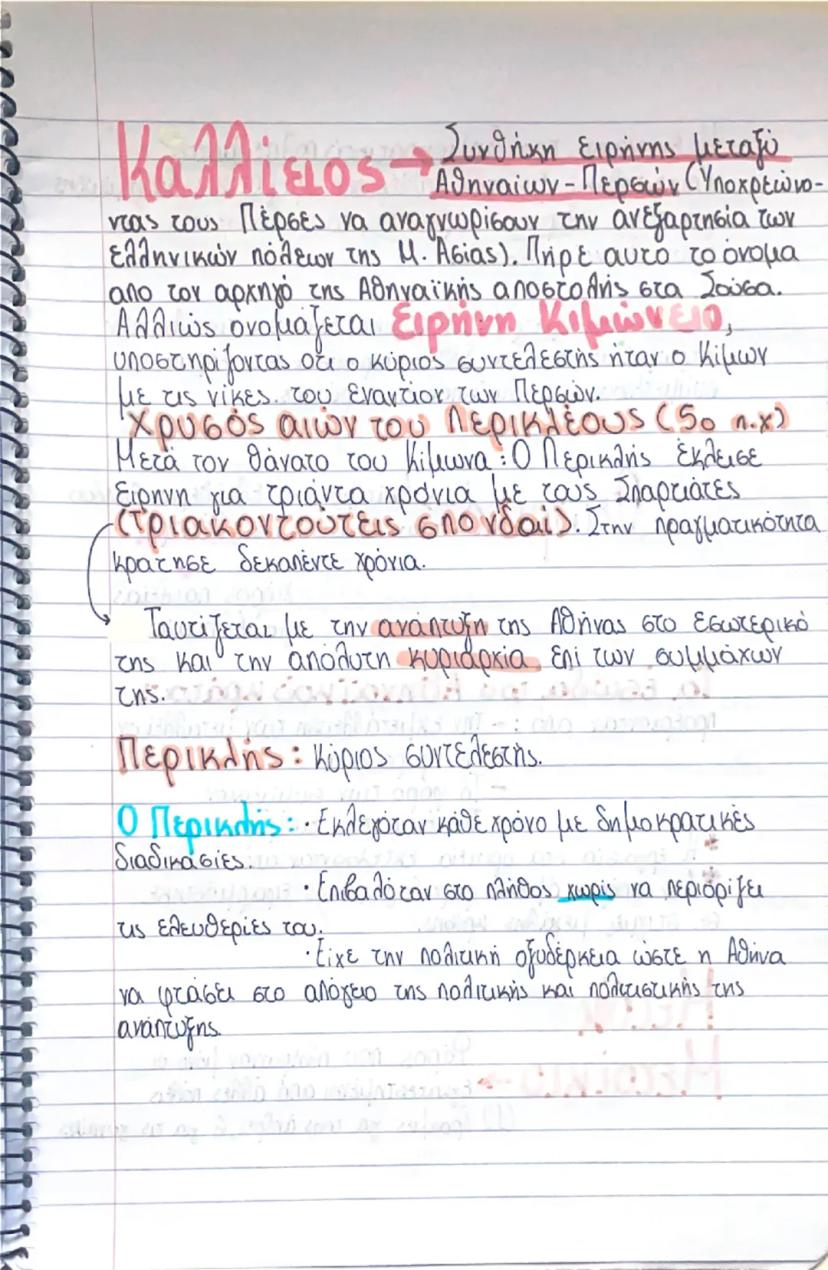 Καλλίειος → Συνθήκη ειρήνης μεταξύ
Αθηναίων - Περσών (Υποχρεώνο-
ντας τους Πέρσες να αναγνωρίσουν την ανεξαρτησία των
ελληνικών πόλεων της Μ. Ασίας). Πήρε αυτό το όνομα
απο τον αρχηγό της Αθηναϊκής αποστολής στα Σούσα.
Αλλιώς ονομάζεται Ειρήνη Κιμώνειο,
υποστηρίζοντας οτι ο κύριος συντελεστής ήταν ο Κίμων
με τις νίκες του εναντίον των Περσών.
Χρυσός αιών του Περικλέους (5ο π.χ)
Μετά τον θάνατο του Κίμωνα: Ο Περικλής έκλεισε
ειρηνη για τριάντα χρόνια με τους Σπαρτιάτες
(Τριακοντούτεις σπονδαί). Στην πραγματικότητα
κρατησε δεκαπέντε χρόνια.
Ταυτίζεται με την ανάπτυξη της Αθήνας στο εσωτερικό
της και την απόλυτη κυριαρχία επί των συμμάχων
της.
Περικλής: Κύριος συντελεστής.
Ο Περικλής: · Εκλεγόταν κάθε χρόνο με δημοκρατικές
διαδικασίες.
· Επιβαλόταν στο πλήθος χωρίς να περιορίζει
τις ελευθερίες του.
· Είχε την πολιτική οξυδέρκεια ώστε η Αθήνα
να φτάσει στο απόγειο της πολιτικής και πολιτιστικής της
ανάπτυξης.